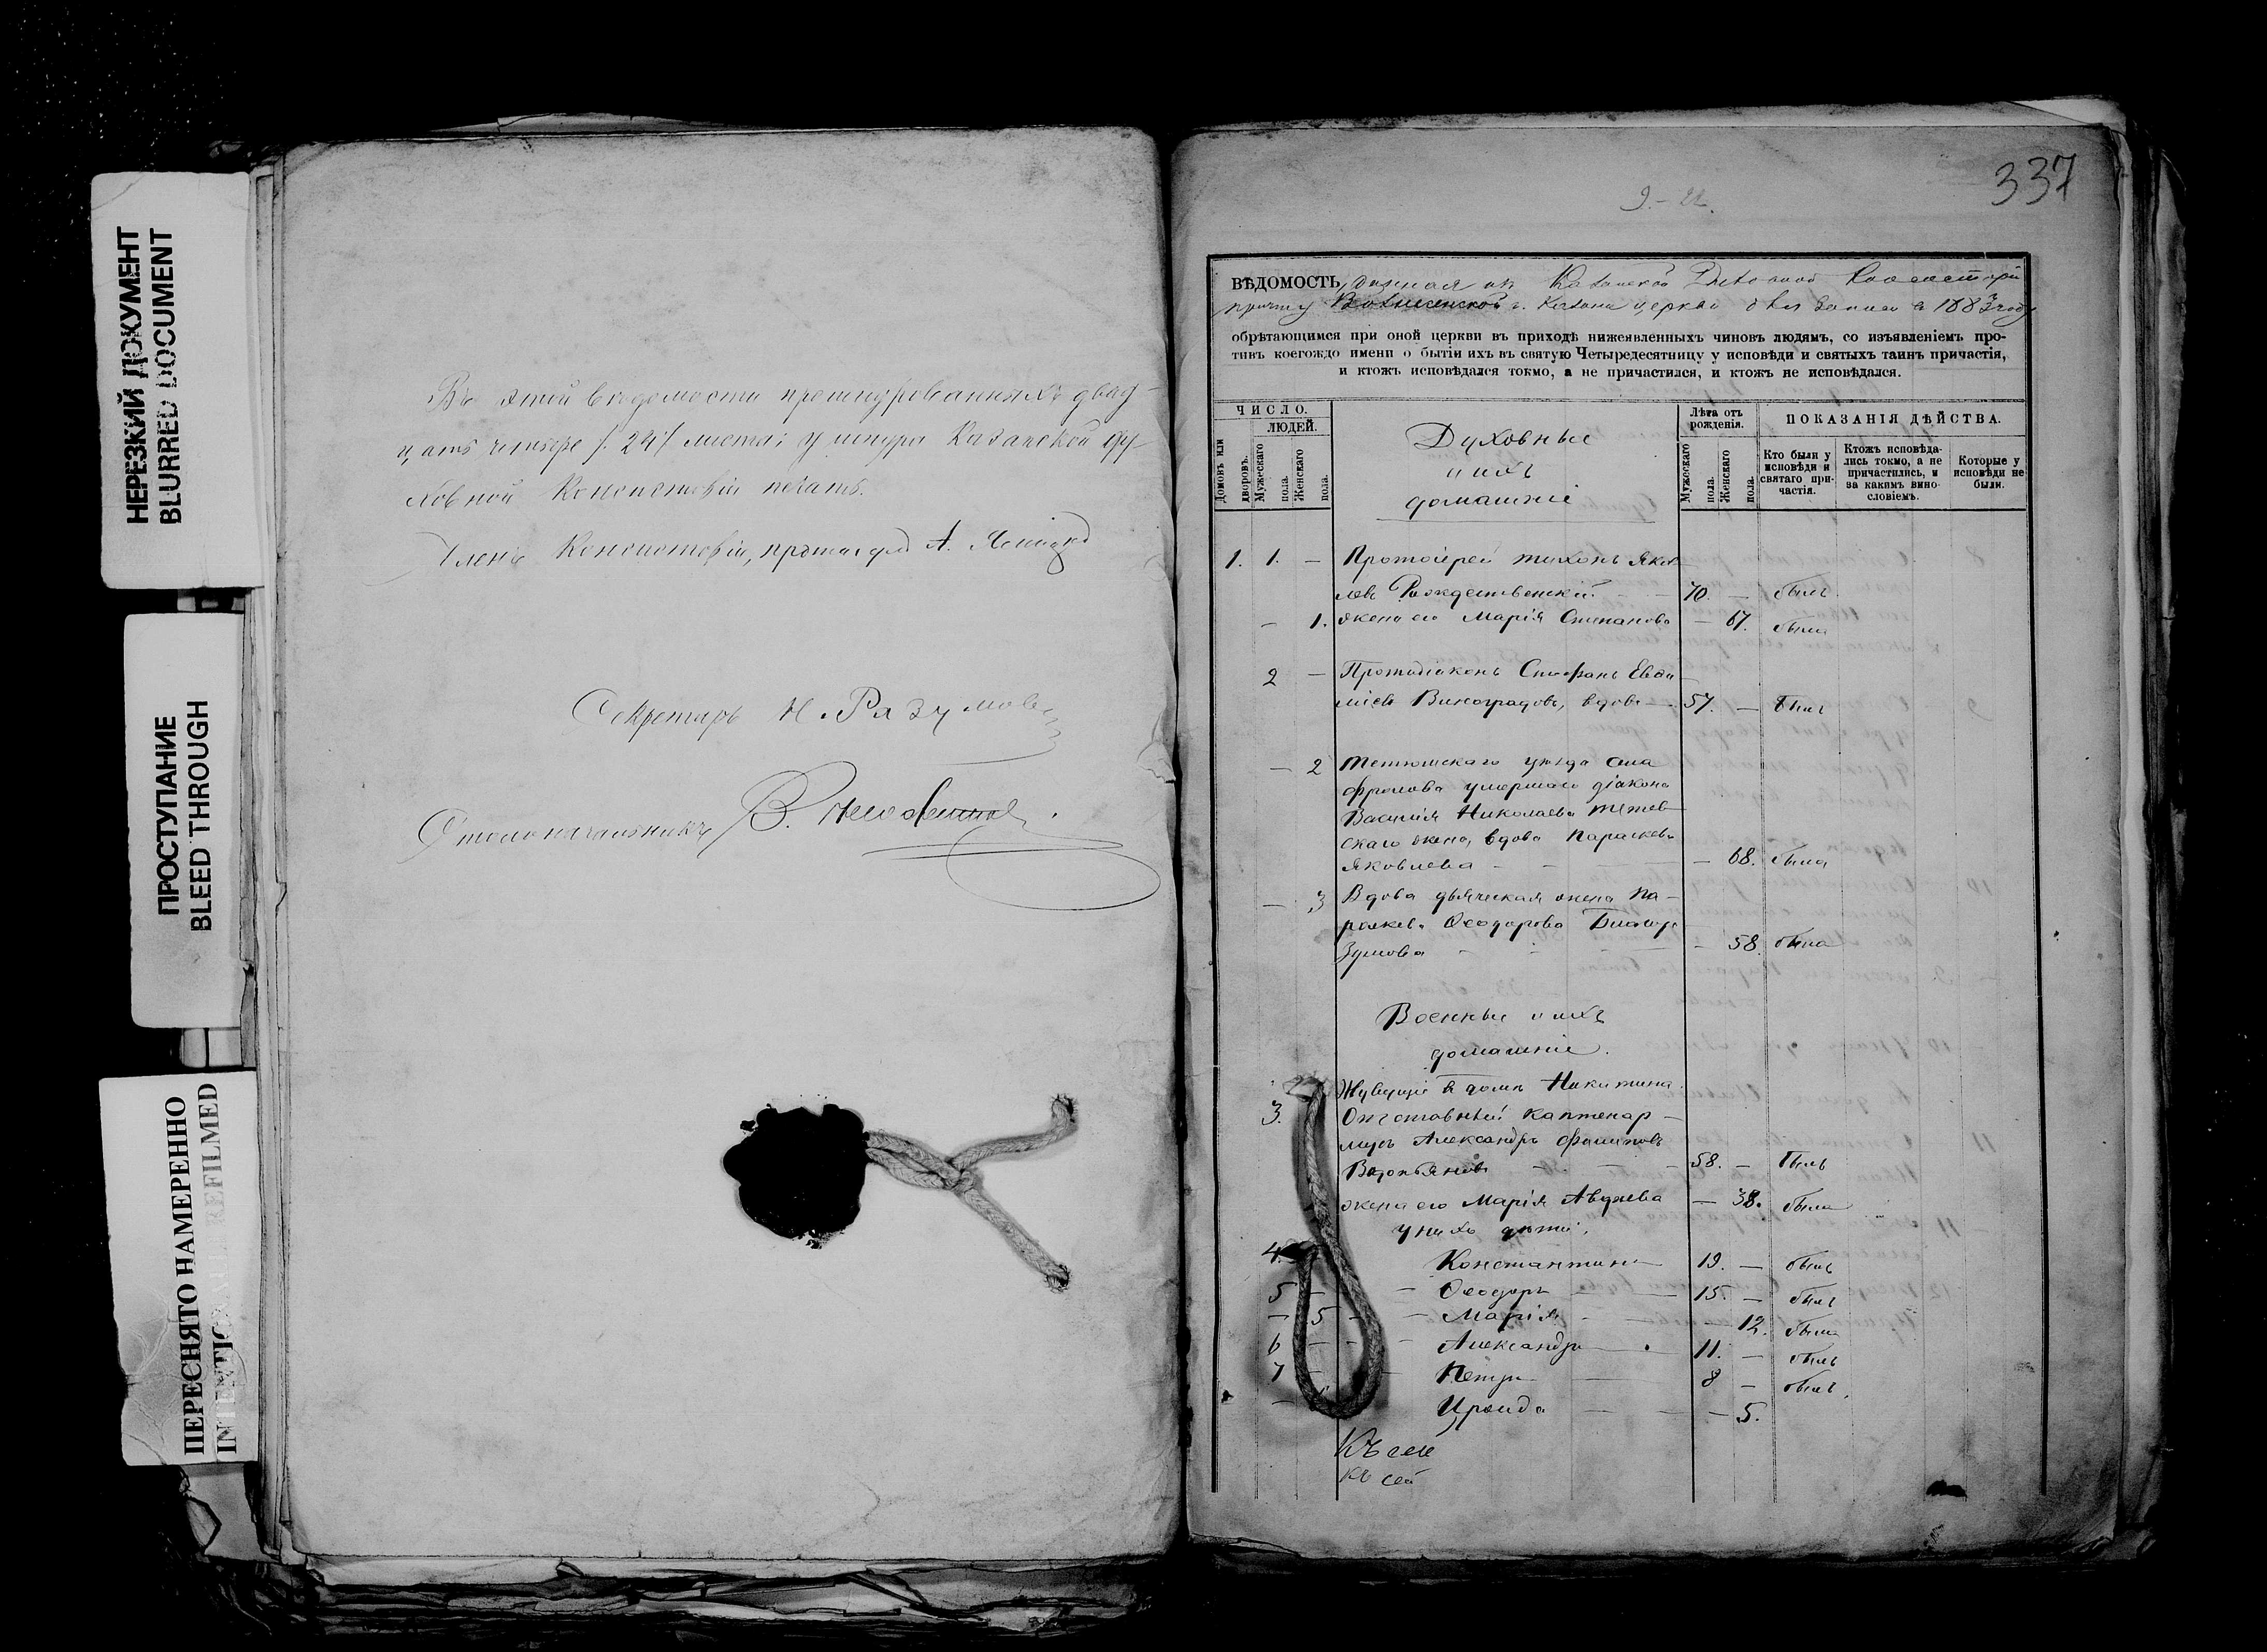 НЕРЕЗКИЙ ДОКУМЕНТ
BLURRED DOCUMENT
ПРОСТУПАНИЕ
BLEED THROUGH
ПЕРЕСНЯТО НАМЕРЕННО
INTENTIONALLY REFILMED
Въ этой вѣдомости прошнурованныхъ двад-
цать четыре /24/ листа; у шнура Казанской Ду
ховной Консисторіи печать.
Членъ Консисторіи, протоіерей А.
Секретарь Н. Разумовъ
Столоначальникъ В.
337
9.-22.
ВѢДОМОСТЬ, данная изъ Казанской Духовной Консисторіи
причту Вознесенской г. Казани церкви для записи въ 1883 году
обрѣтающимся при оной церкви въ приходѣ нижеявленныхъ чиновъ людямъ, со изъявленіемъ про-
тивъ коегождо имени о бытіи ихъ въ святую Четыредесятницу у исповѣди и святыхъ таинъ причастія,
и ктожъ исповѣдался токмо, а не причастился, и ктожъ не исповѣдался.
ЧИСЛО.
ЛЮДЕЙ.
Домовъ или дворовъ.
Мужескаго пола.
Женскаго пола.
Духовные
и ихъ
домашніе
Лѣта отъ рожденія.
Мужескаго пола.
Женскаго пола.
ПОКАЗАНІЯ ДѢЙСТВА.
Кто были у исповѣди и святаго при-частія.
Ктожъ исповѣда-лись токмо, а не причастились, и за какимъ вино-словіемъ.
Которые у исповѣди не были.
1. 1. — Протоіерей Тихонъ Яков
левъ Рождественскій — 70. — былъ
— 1. жена его Марія Степанова — 67. была
2 — Протодіаконъ Стефанъ Евѳи
міевъ Виноградовъ, вдовъ — 57. — былъ
— 2 Тетюшскаго уѣзда села
Фролова умершаго діакона
Василія Николаева
скаго жена, вдова Параскева
Яковлева — — 68. была
— 3 Вдова дьяческая жена Па-
раскева Ѳеодорова Благора
зумова — — 58. была
Военные и ихъ
домашніе.
Живущіе въ домѣ Никитина.
3. Отставный каптенар-
мусъ Александръ Филиповъ
Водопьяновъ — 58. — былъ
жена его Марія Авдѣева — 38. была
у нихъ дѣти:
4. Константинъ 19. — былъ
5 — Ѳеодоръ — 15. — былъ
— 5 — Марія — — 12. была
6 — — Александръ — 11. — былъ
7 — Петръ — 8 — былъ.
— Ираида — — 5.
Къ сей
къ сей